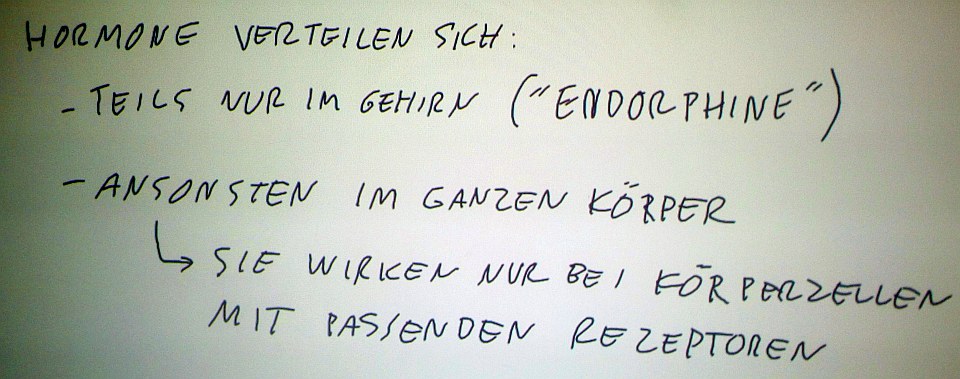 HORMONE VERTEILEN SICH:
- TEILS NUR IM GEHIRN ("ENDORPHINE")
- ANSONSTEN IM GANZEN KÖRPER
↳ SIE WIRKEN NUR BEI KÖRPERZELLEN
MIT PASSENDEN REZEPTOREN